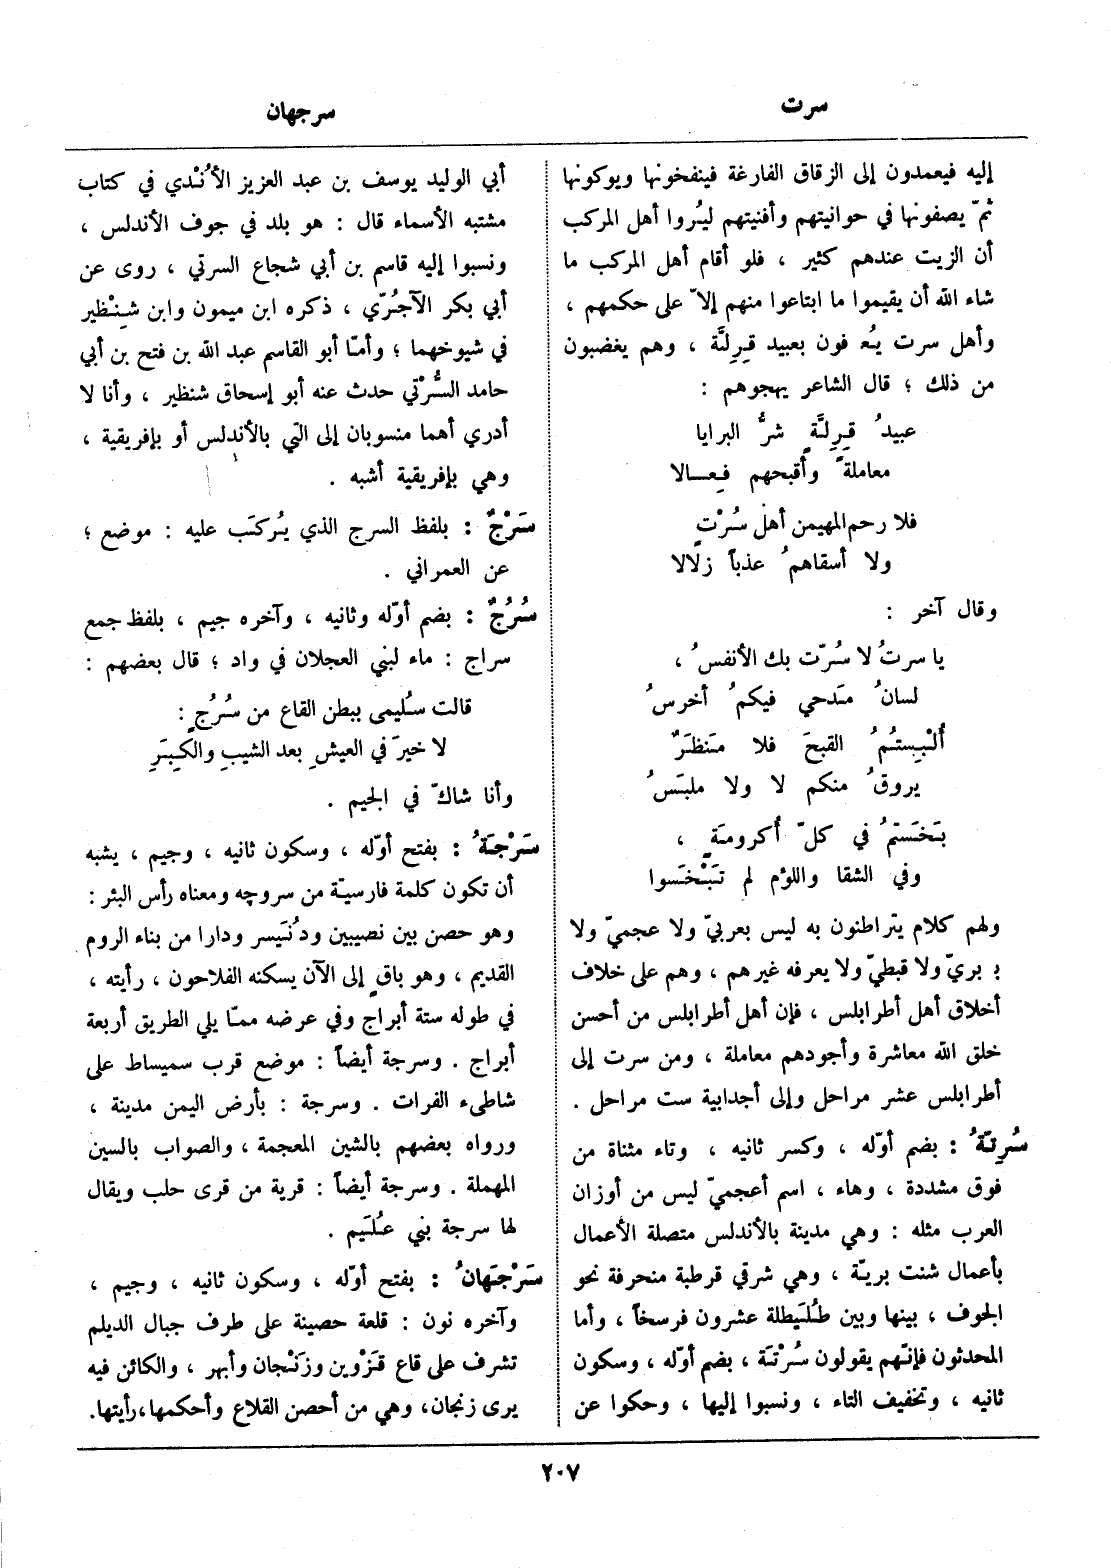 سرت
سرجهان
إليه فيعمدون إلى الزقاق الفارغة فينفخونها ويوكونها
ثمّ يصفونها في حوانيتهم وأفنيتهم ليُروا أهل المركب
أن الزيت عندهم كثير ، فلو أقام أهل المركب ما
شاء الله أن يقيموا ما ابتاعوا منهم إلاّ على حكمهم ،
وأهل سرت يُعـ فون بعبيد قِرِلَّة ، وهم يغضبون
من ذلك ؛ قال الشاعر يهجوهم :
عبيدُ قِرِلَّةٍ شرُّ البرايا
معاملةً وأقبحهم فِعـالا
فلا رحم المهيمن أهل سُرْتٍ
ولا أسقاهمُ عذباً زلالا
وقال آخر :
يا سرتُ لا سُرّت بك الأنفسُ ،
لسانُ مَدحي فيكمُ أخرسُ
أُلْبِستُمُ القبحَ فلا مَنظَرٌ
يروقُ منكم لا ولا ملبَسُ
بَخَستمُ في كلّ أكرومَةٍ ،
وفي الشقا واللؤم لم تَبْخَسوا
ولهم كلام يتراطنون به ليس بعربيّ ولا عجميّ ولا
بربريّ ولا قبطيّ ولا يعرفه غيرهم ، وهم على خلاف
أخلاق أهل أطرابلس ، فإن أهل أطرابلس من أحسن
خلق الله معاشرة وأجودهم معاملة ، ومن سرت إلى
أطرابلس عشر مراحل وإلى أجدابية ست مراحل .
سُرِتّةُ : بضم أوّله ، وكسر ثانيه ، وتاء مثناة من
فوق مشددة ، وهاء ، اسم أعجميّ ليس من أوزان
العرب مثله : وهي مدينة بالأندلس متصلة الأعمال
بأعمال شنت بريّة ، وهي شرقي قرطبة منحرفة نحو
الجوف ، بينها وبين طُلَيطلة عشرون فرسخاً ، وأما
المحدثون فإنّهم يقولون سُرْتَة ، بضم أوّله ، وسكون
ثانيه ، وتخفيف التاء ، ونسبوا إليها ، وحكوا عن
أبي الوليد يوسف بن عبد العزيز الأُنْدي في كتاب
مشتبه الأسماء قال : هو بلد في جوف الأندلس ،
ونسبوا إليه قاسم بن أبي شجاع السرتي ، روى عن
أبي بكر الآجُرّي ، ذكره ابن ميمون وابن شِنْظير
في شيوخهما ؛ وأمّا أبو القاسم عبد الله بن فتح بن أبي
حامد السُّرْتي حدث عنه أبو إسحاق شنظير ، وأنا لا
أدري أهما منسوبان إلى التي بالأندلس أو بإفريقية ،
وهي بإفريقية أشبه .
سَرْجٌ : بلفظ السرج الذي يُركَب عليه : موضع ؛
عن العمراني .
سُرُجٌ : بضم أوّله وثانيه ، وآخره جيم ، بلفظ جمع
سراج : ماء لبني العجلان في واد ؛ قال بعضهم :
قالت سُليمى ببطن القاع من سُرُجٍ :
لا خيرَ في العيشِ بعد الشيبِ والكِبَرِ
وأنا شاكّ في الجيم .
سَرْجَةُ : بفتح أوّله ، وسكون ثانيه ، وجيم ، يشبه
أن تكون كلمة فارسيّة من سروچه ومعناه رأس البئر :
وهو حصن بين نصيبين ودُنَيسر ودارا من بناء الروم
القديم ، وهو باقٍ إلى الآن يسكنه الفلاحون ، رأيته ،
في طوله ستة أبراج وفي عرضه ممّا يلي الطريق أربعة
أبراج . وسرجة أيضاً : موضع قرب سميساط على
شاطىء الفرات . وسرجة : بأرض اليمن مدينة ،
ورواه بعضهم بالشين المعجمة ، والصواب بالسين
المهملة . وسرجة أيضاً : قرية من قرى حلب ويقال
لها سرجة بني عُلَيم .
سَرْجَهانُ : بفتح أوّله ، وسكون ثانيه ، وجيم ،
وآخره نون : قلعة حصينة على طرف جبال الديلم
تشرف على قاع قَزْوين وزَنْجان وأبهر ، والكائن فيه
يرى زنجان، وهي من أحصن القلاع وأحكمها، رأيتها.
٢٠٧